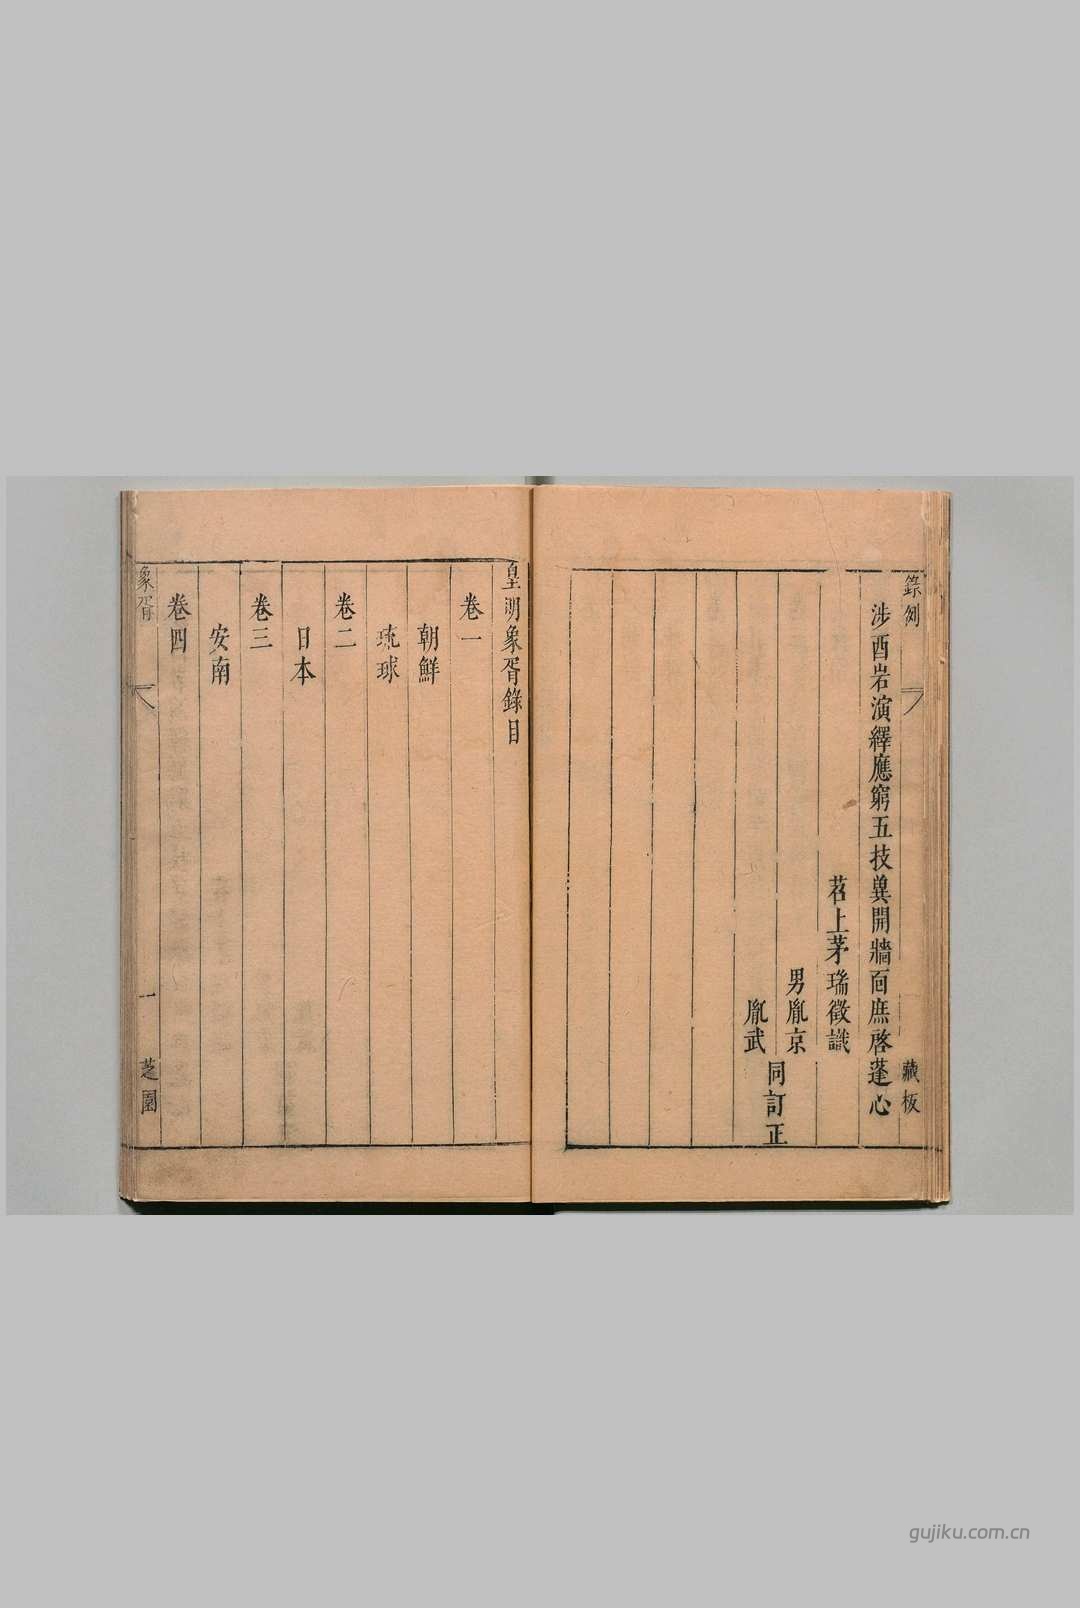 錄例
藏板
涉酉岩演繹應窮五技冀開牆面庶啓蓬心
苕上茅瑞徵識
男胤京
胤武
同訂正
皇明象胥錄目
卷一
朝鮮
琉球
卷二
日本
卷三
安南
卷四
象胥
一
芝園
gujiku.com.cn